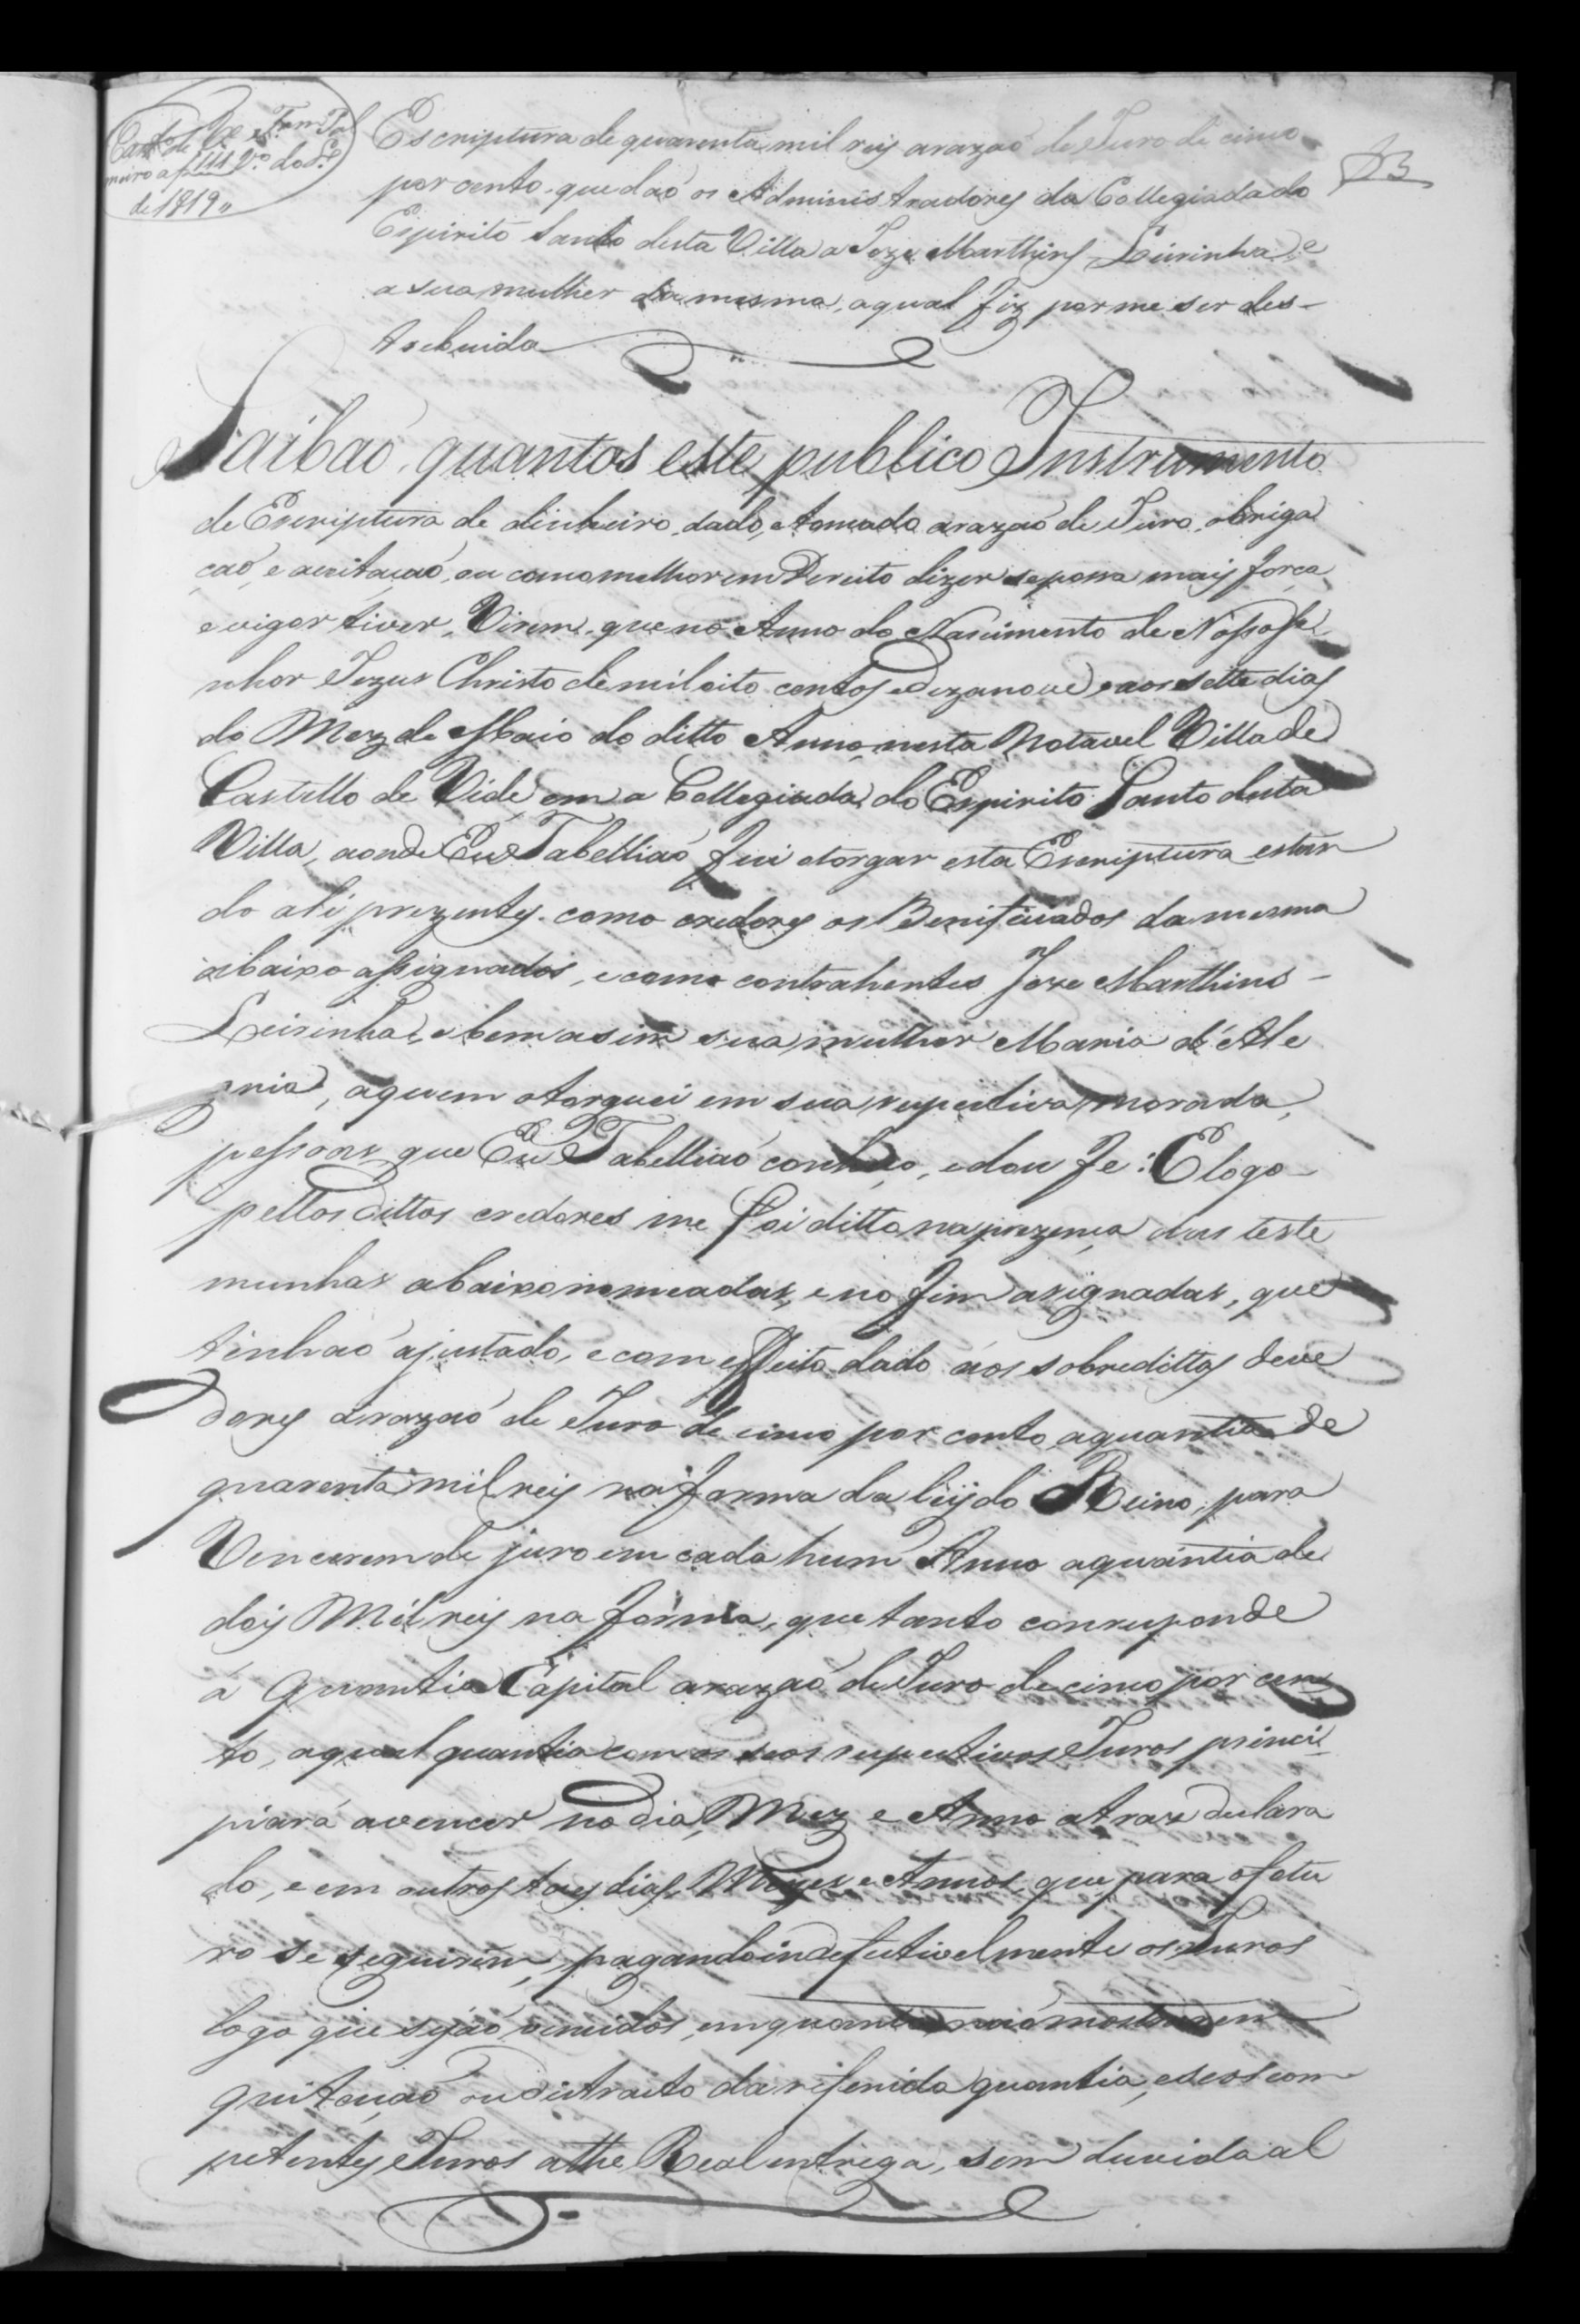 de 1819,,
Escriptura de quarenta mil reis arazaõ de Juro de cinco
por cento, que daõ os Administradores da Collegiada do
Espirito Santo desta Villa a Joze Marthins Leirinha, e
a sua mulher da mesma, aqual fiz por me ser des-
trebuida
Saibaõ quantos este publico Instrumento
de Escriptura de dinheiro, dado, etomado arazaõ de Juro, obriga
caõ, e aceitaçaõ, ou como melhor em Dereito dizer se possa mais força
e vigor tiver, Virem, que no Anno do Nascimento de Nosso Se
nhor Jezus Christo de mil oito centos e Dezanove e aos sette dias
do Mez de Maio do ditto Anno, nesta Notavel Villa de
Castello de Vide em a Collegiada do Espirito Santo desta
Villa, aonde Eu Tabelliaõ fui otorgar esta Escriptura estan
do ahi prezentes como credores os Benificiados da mesma
abaixo assignados, e como contrahentes Joze Marthins -
Leirinha, e bem asim sua mulher Maria d'Ale
gria, aquem otorguei em sua respectiva morada,
pessoas que Eu Tabelliaõ conheço, e dou fe: E logo
pellos dittos credores me foi ditto na prezença das teste
munhas abaixo nomeadas, e no fim asignadas, que
tinhaõ ajustado, e com effeito dado aos sobredittos deve
dores arazaõ de Juro de cinco por cento aquantia de
quarenta mil reis na forma da leÿ do Reino, para
Vencerem de juro em cada hum Anno aquantia de
dois Mil reis na forma, que tanto corresponde
á Quantia Capital arazaõ de Juro de cinco por cen
to, aqual quantia com os seos respectivos Juros princi
piará avencer no dia, Mez e Anno atraz declara
do, e em outros taes dias, Mezes e Annos, que para ofutu
ro se seguirem, pagando indefectivelmente os Juros
logo que sejaõ vencidos, em quanto naõ mostrarem
quitaçaõ ou distracto da referida quantia, e seos com
petentes Juros athe Real entrega, sem duvida al